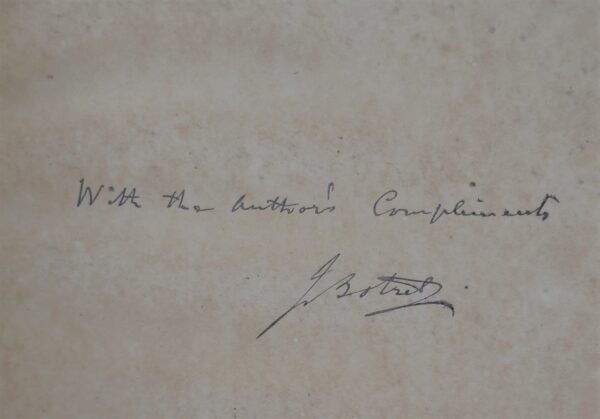 With the Author's Compliments
J Botrel.